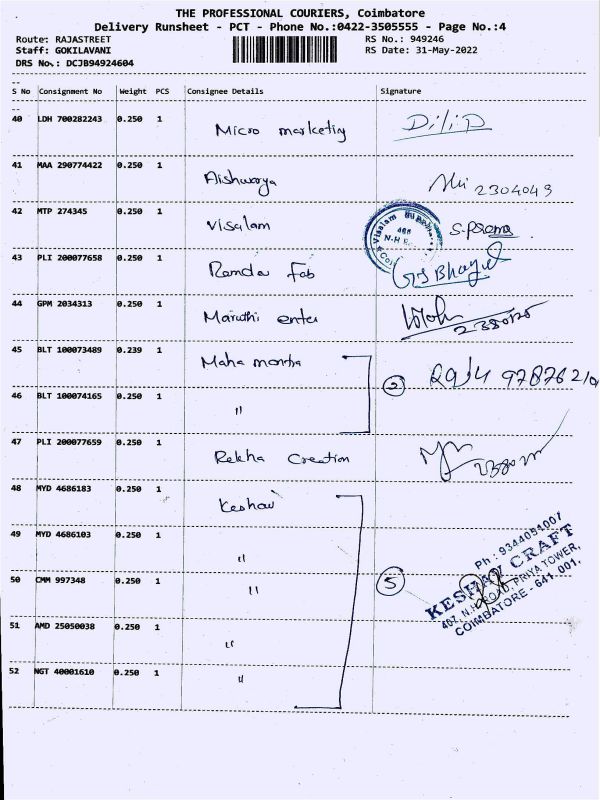 THE PROFESSIONAL COURIERS, Coimbatore
Delivery Runsheet - PCT - Phone No.:0422-3505555 - Page No.:4
Route: RAJASTREET RS No.: 949246
Staff: GOKILAVANI RS Date: 31-May-2022
DRS No.: DCJB94924604
S No Consignment No Weight PCS Consignee Details Signature
40 LDH 700282243 0.250 1 Micro marketing Dilip
41 MAA 290774422 0.250 1 Aishwarya 2304049
42 MTP 274345 0.250 1 Visalam S. Prema
Visalam
43 PLI 200077658 0.250 1 Ramdev Fab
44 GPM 2034313 0.250 1 Maruthi enter
45 BLT 100073489 0.239 1 Maha mantra
46 BLT 100074165 0.250 1 "
47 PLI 200077659 0.250 1 Rekha Creation
48 MYD 4686183 0.250 1 Keshav
49 MYD 4686103 0.250 1 "
50 CMM 997348 0.250 1 " 5
Ph : 9344051007
KESHAV CRAFT
407, N.H. ROAD, PRIYA TOWER,
COIMBATORE - 641 001.
51 AMD 25050038 0.250 1 "
52 NGT 40001610 0.250 1 "